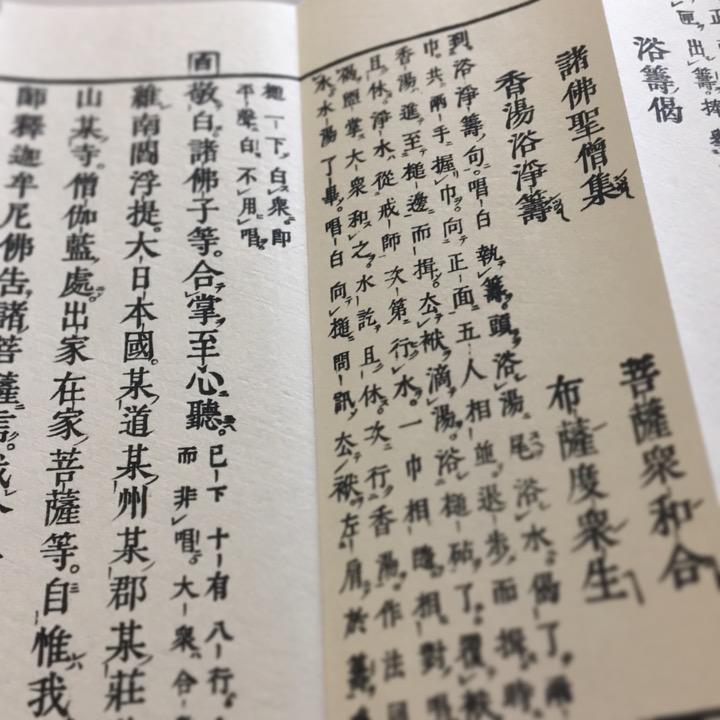 匣出籌
浴籌偈
諸佛聖僧集 菩薩衆和合
香湯浴淨籌 布薩度衆生
到浴淨籌句。唱白執籌頭浴湯尾浴水。偈了兩
巾。共兩手握巾。向正面五人相並退步而揖時
香湯進至槌邊而揖。去袱滴湯。浴槌砧了。覆袱
且休。淨水從戒師次第行水。一巾相隨。相對唱
掌。大衆和之。水訖且休。次行香湯。作法同
水。水湯了畢。唱白向槌問訊。去袱左肩於
百
槌一下。白衆即
平聲白。不用唱
敬白諸佛子等。合掌至心聽。
已下十有八行。
而非唱。大衆合
維南閻浮提。大日本國。某道某州某郡某莊
山某寺。僧伽藍處。出家在家菩薩等。自惟我
師釋迦牟尼佛告諸菩薩言。我